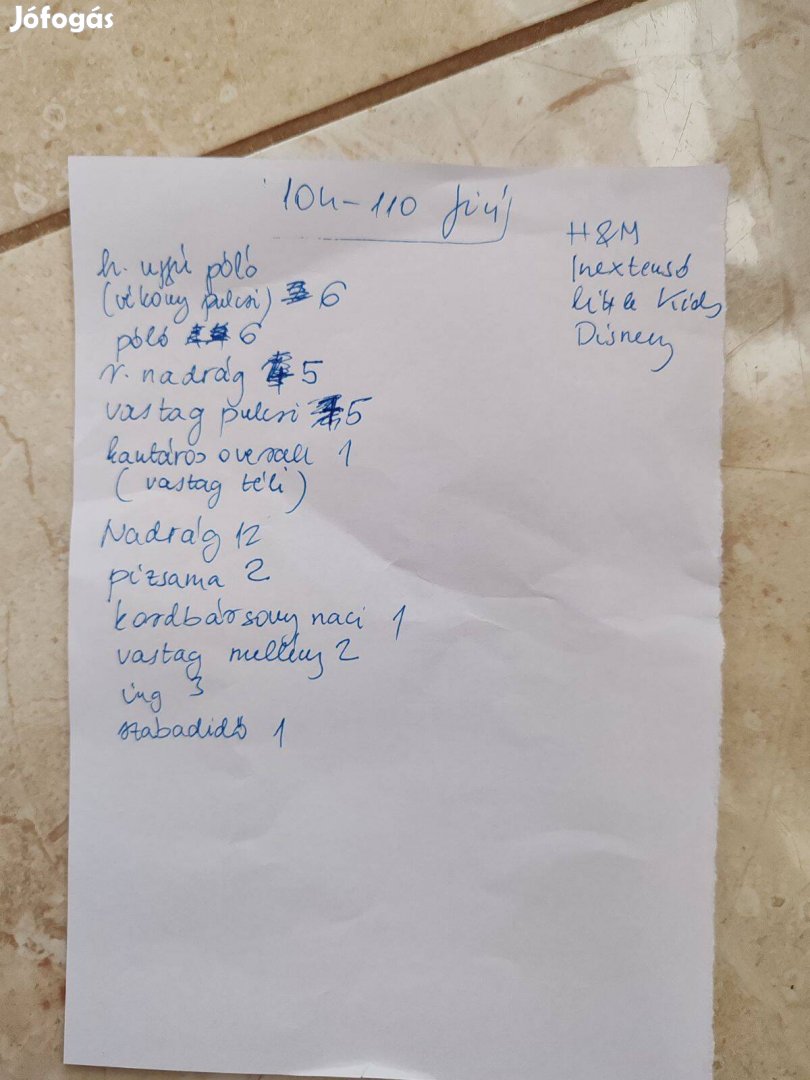 Jófogás
104-110 fiú
h. ujjú póló
(vékony pulcsi) 6
póló 6
r. nadrág 5
vastag pulcsi 5
kantáros overall 1
(vastag téli)
Nadrág 12
pizsama 2
kordbársony naci 1
vastag mellény 2
ing 3
szabadidő 1
H&M
Inextensó
Little Kids
Disney